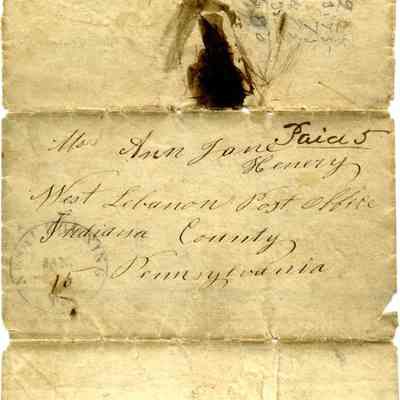 Paid 5
Miss Ann Jane
Henery
West Lebanon Post Office
Indiana County
Pennsylvania
15